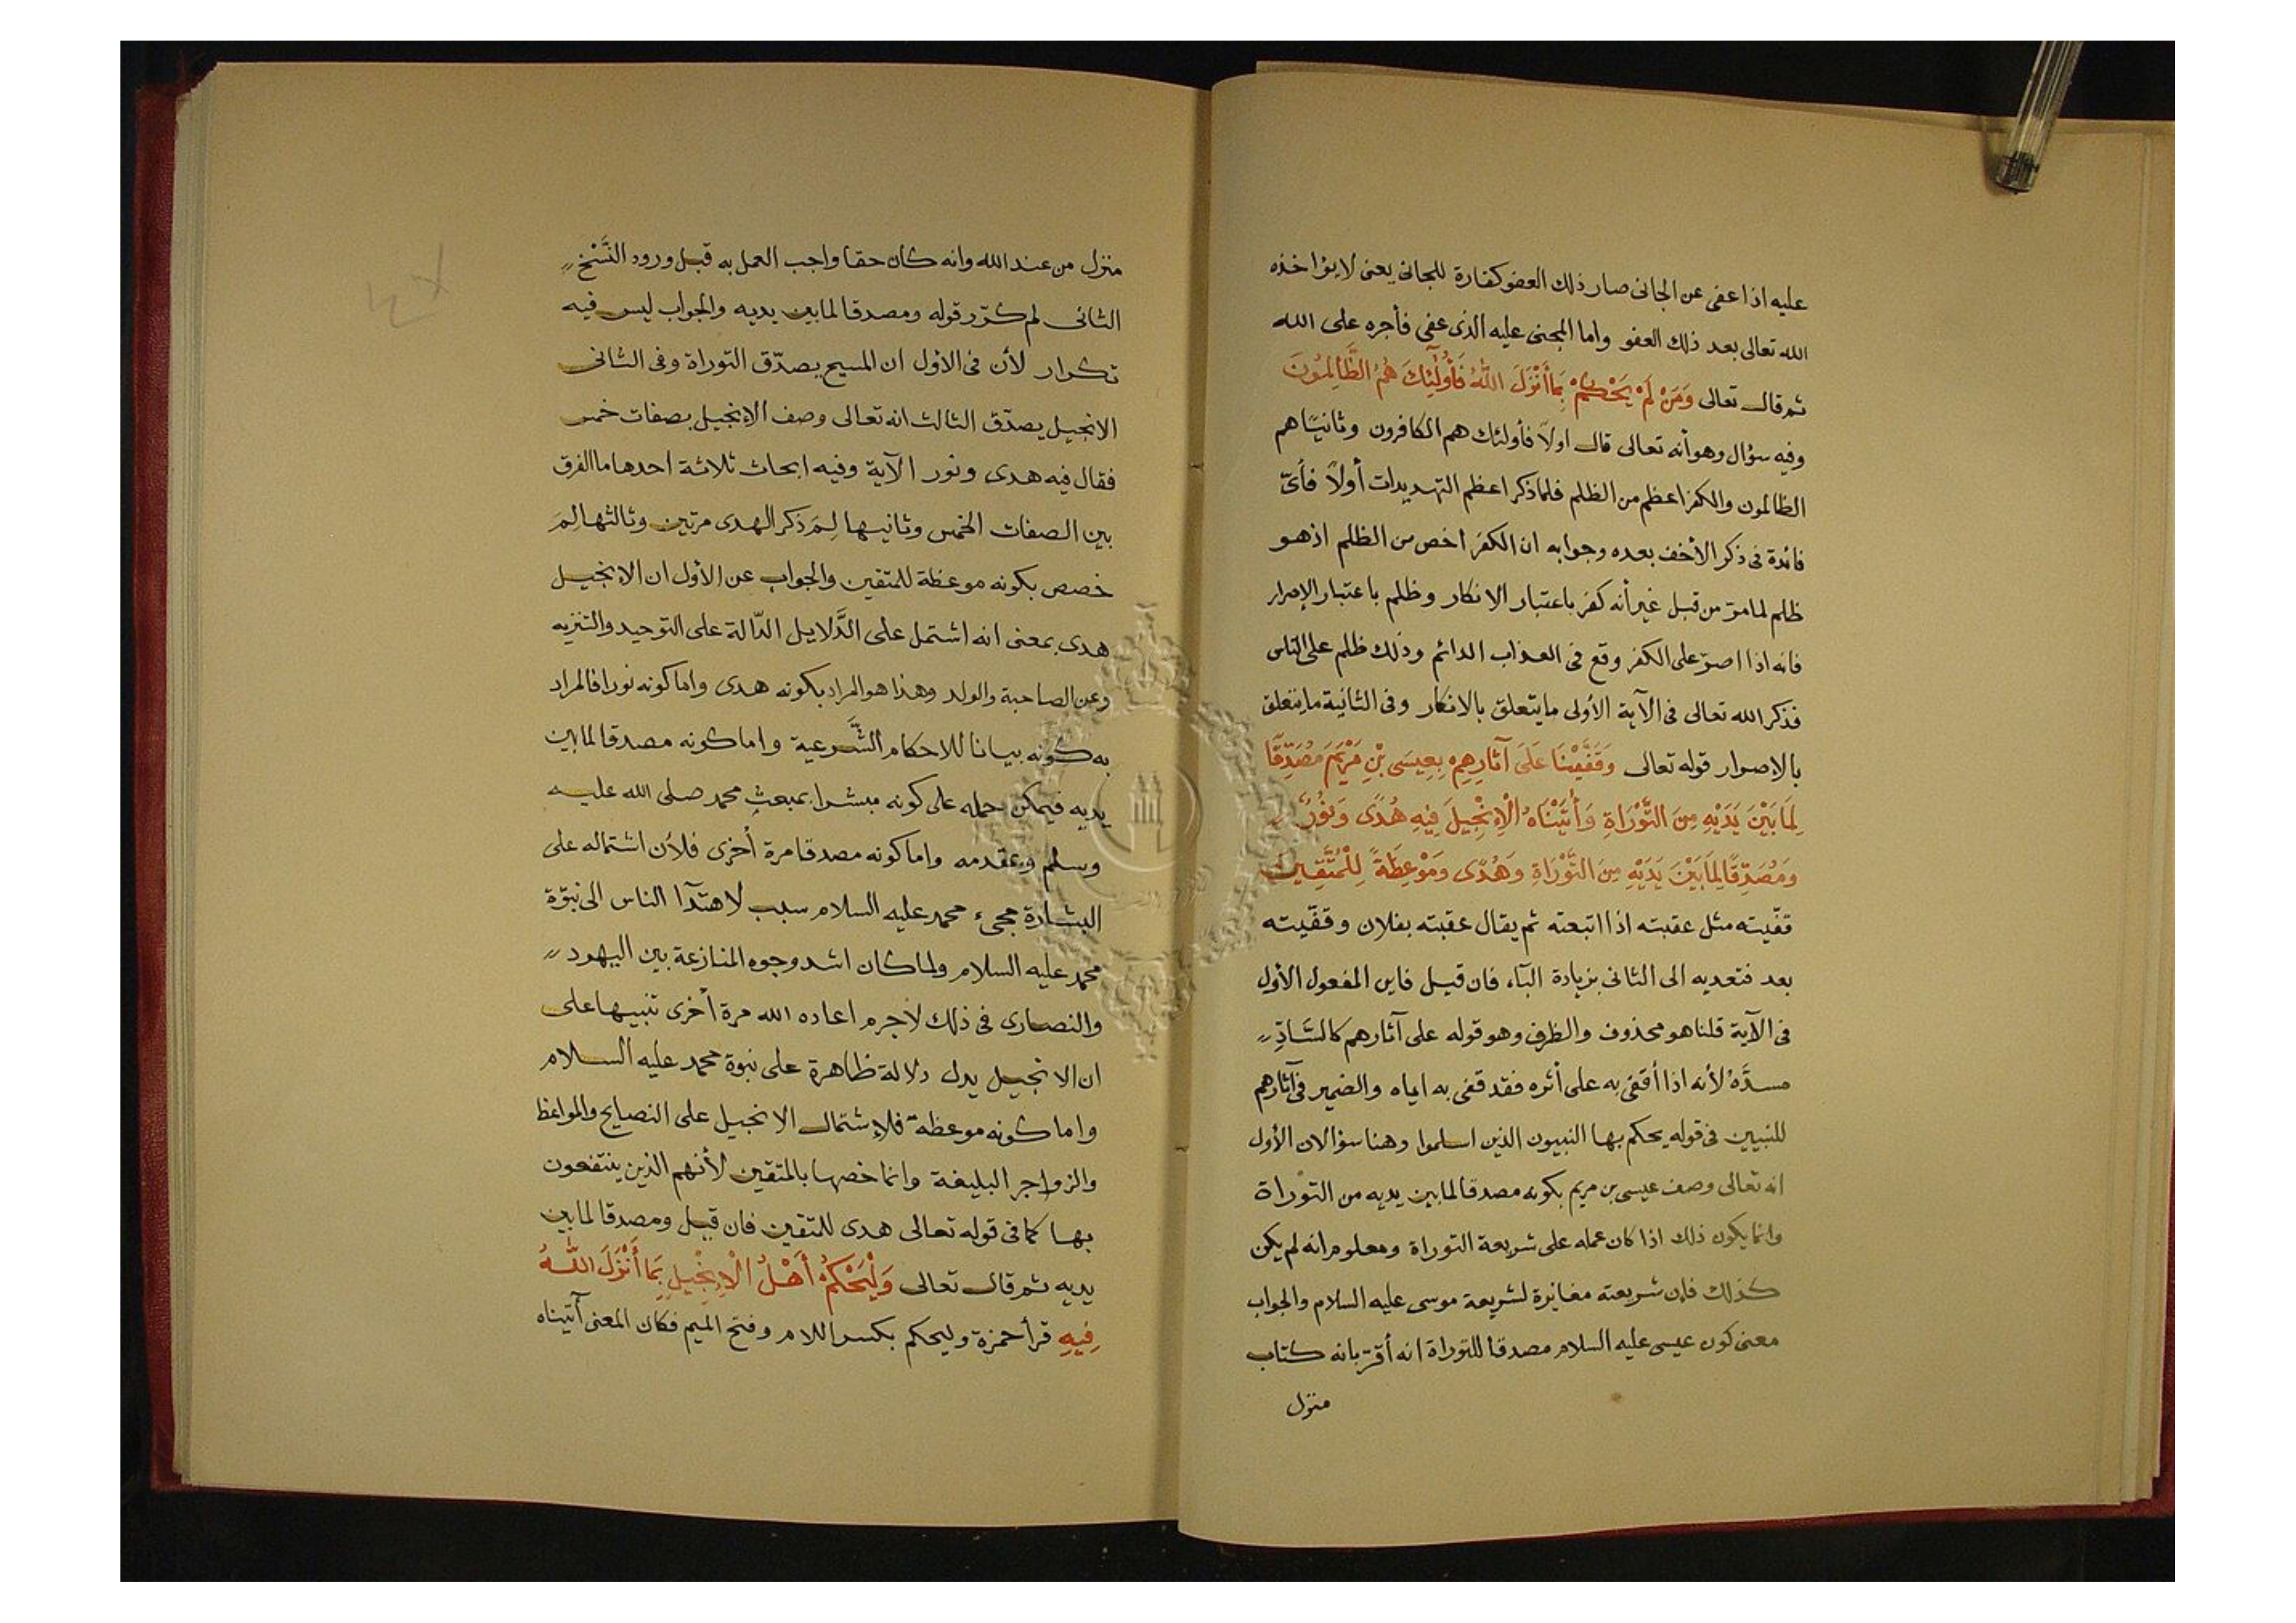 عليه اذا عفى عن الجانى صار ذلك العفو كفارة للجانى يعنى لا يؤاخذه
الله تعالى بعد ذلك العفو واما المجنى عليه الذى عفى فأجره على الله
ثم قال تعالى وَمَنْ لَمْ يَحْكُمْ بِمَا أَنْزَلَ اللّٰهُ فَأُولٰئِكَ هُمُ الظَّالِمُونَ
وفيه سؤال وهو أنه تعالى قال اولاً فأولئك هم الكافرون وثانيًا هم
الظالمون والكفر اعظم من الظلم فلما ذكر اعظم التهديدات أولاً فأىّ
فائدة فى ذكر الأخف بعده وجوابه ان الكفر اخص من الظلم اذ هو
ظلم لما مرّ من قبل غير أنه كفر باعتبار الانكار وظلم باعتبار الإصرار
فانه اذا اصرّ على الكفر وقع فى العذاب الدائم وذلك ظلم على الناس
فذكر الله تعالى فى الآية الأولى ما يتعلق بالانكار وفى الثانية ما يتعلق
بالإصرار قوله تعالى وَقَفَّيْنَا عَلَى آثَارِهِمْ بِعِيسَى بْنِ مَرْيَمَ مُصَدِّقًا
لِمَا بَيْنَ يَدَيْهِ مِنَ التَّوْرَاةِ وَأٰتَيْنَاهُ الْإِنْجِيلَ فِيهِ هُدًى وَنُورٌ
وَمُصَدِّقًا لِمَا بَيْنَ يَدَيْهِ مِنَ التَّوْرَاةِ وَهُدًى وَمَوْعِظَةً لِلْمُتَّقِينَ
قفّيته مثل عقبته اذا اتبعته ثم يقال عقبته بفلان وقفّيته
بعد فتعديه الى الثانى بزيادة البآء فان قيل فاين المفعول الأول
فى الآية قلنا هو محذوف والظرف وهو قوله على آثارهم كالسَّادِّ
مسدَّهُ لأنه اذا أقفى به على أثره فقد قفى به اياه والضمير فى آثارهم
للنبيين فى قوله يحكم بها النبيون الذين اسلموا وهنا سؤالان الأول
انه تعالى وصف عيسى بن مريم بكونه مصدقا لما بين يديه من التوراة
وانما يكون ذلك اذا كان عمله على شريعة التوراة ومعلوم انه لم يكن
كذلك فإن شريعته مغايرة لشريعة موسى عليه السلام والجواب
معنى كون عيسى عليه السلام مصدقا للتوراة انه أقرّ بانه كتاب
منزل
منزل من عند الله وانه كان حقا واجب العمل به قبل ورود النَّسْخ
الثانى لم كرّر قوله ومصدقا لما بين يديه والجواب ليس فيه
تكرار لأن فى الاول ان المسيح يصدّق التوراة وفى الثانى
الانجيل يصدّق الثالث انه تعالى وصف الإنجيل بصفات خمس
فقال فيه هدى ونور الآية وفيه ابحاث ثلاثة احدها ما الفرق
بين الصفات الخمس وثانيها لِمَ ذكر الهدى مرتين وثالثها لِمَ
خصص بكونه موعظة للمتقين والجواب عن الأول ان الانجيل
هدى بمعنى انه اشتمل على الدَّلايل الدّالة على التوحيد والتنزيه
وعن الصاحبة والولد وهذا هو المراد بكونه هدى واما كونه نورا فالمراد
به كونه بيانا للاحكام الشَّرعية واما كونه مصدقا لما بين
يديه فيمكن حمله على كونه مبشرا بمبعثِ محمد صلى الله عليه
وسلم وبمقدمه واما كونه مصدقا مرة أخرى فلأن اشتماله على
البشارة بمجىء محمد عليه السلام سبب لاهتدآ الناس الى نبوّة
محمد عليه السلام ولما كان اشد وجوه المنازعة بين اليهود
والنصارى فى ذلك لاجرم اعاده الله مرة أخرى تنبيها على
ان الانجيل يدل دلالة ظاهرة على نبوة محمد عليه السلام
واما كونه موعظة فلإشتمال الانجيل على النصايح والمواعظ
والزواجر البليغة وانما خصها بالمتقين لأنهم الذين ينتفعون
بها كما فى قوله تعالى هدى للمتقين فان قيل ومصدقا لما بين
يديه ثم قال تعالى وَلْيَحْكُمْ أَهْلُ الْإِنْجِيلِ بِمَا أَنْزَلَ اللّٰهُ
فِيهِ قرأ حمزة وليحكم بكسر اللام وفتح الميم فكان المعنى آتيناه